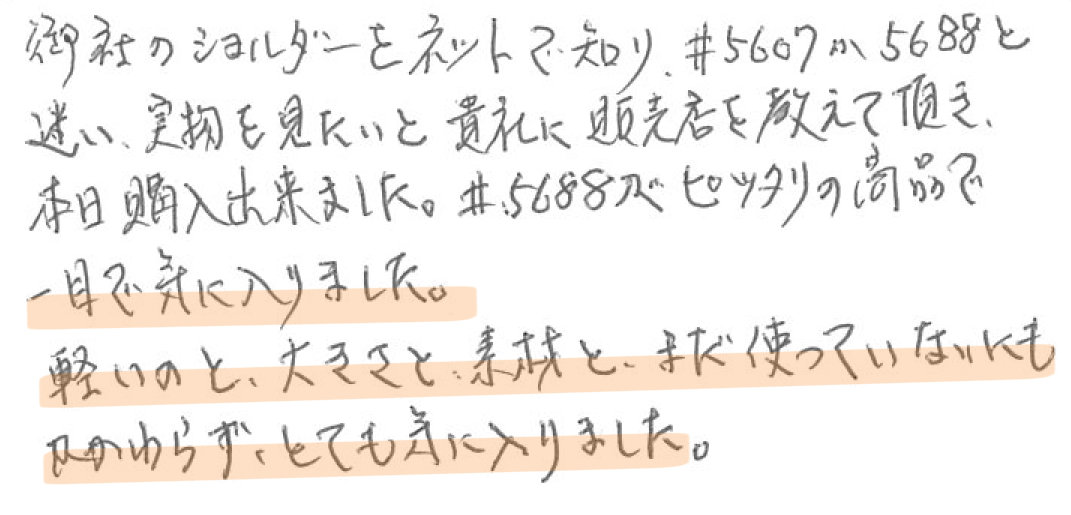 御社のショルダーをネットで知り、#5607か5688と
迷い、実物を見たいと貴社に販売店を教えて頂き、
本日購入出来ました。#5688がピッタリの商品で
一目で気に入りました。
軽いのと、大きさと、素材と、まだ使っていないにも
かかわらず、とても気に入りました。